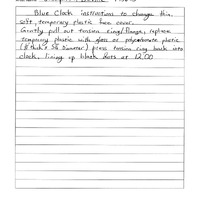 Blue Clock instructions to change thin,
soft, temporary plastic face cover.
Gently pull out tension ring/flange, replace
temporary plastic with glass or polycarbonate plastic
thick x 5 diameter) press tension ring back into
clock, lining up black dots at 12,00